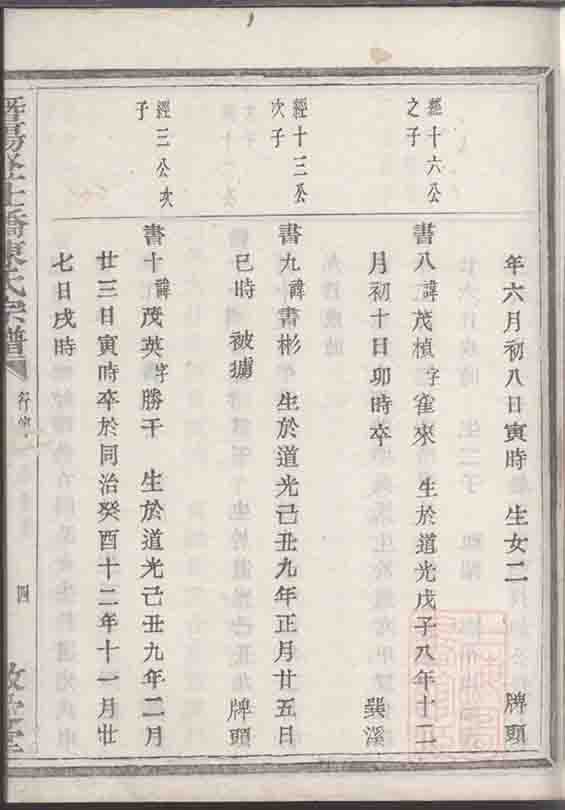 年六月初八日寅時 生女二 牌頭
經十六公之子
書八諱茂楨字隺來 生於道光戊子八年十二
月初十日卯時卒 巽溪
經十三公次子
書九諱書彬 生於道光己丑九年正月廿五日
巳時 被擄 牌頭
經三公次子
書十諱茂英字勝干 生於道光己丑九年二月
廿三日寅時卒於同治癸酉十二年十一月廿
七日戌時
陳氏宗譜 行 四